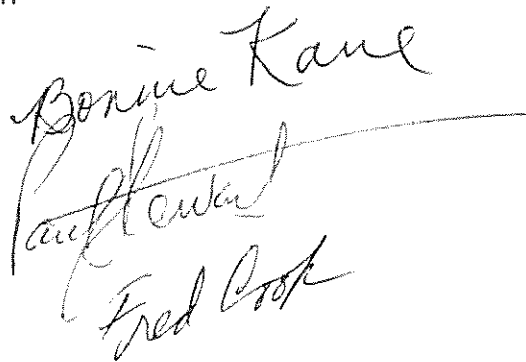 Bonnie Kane
Paul Stewart
Fred Cook